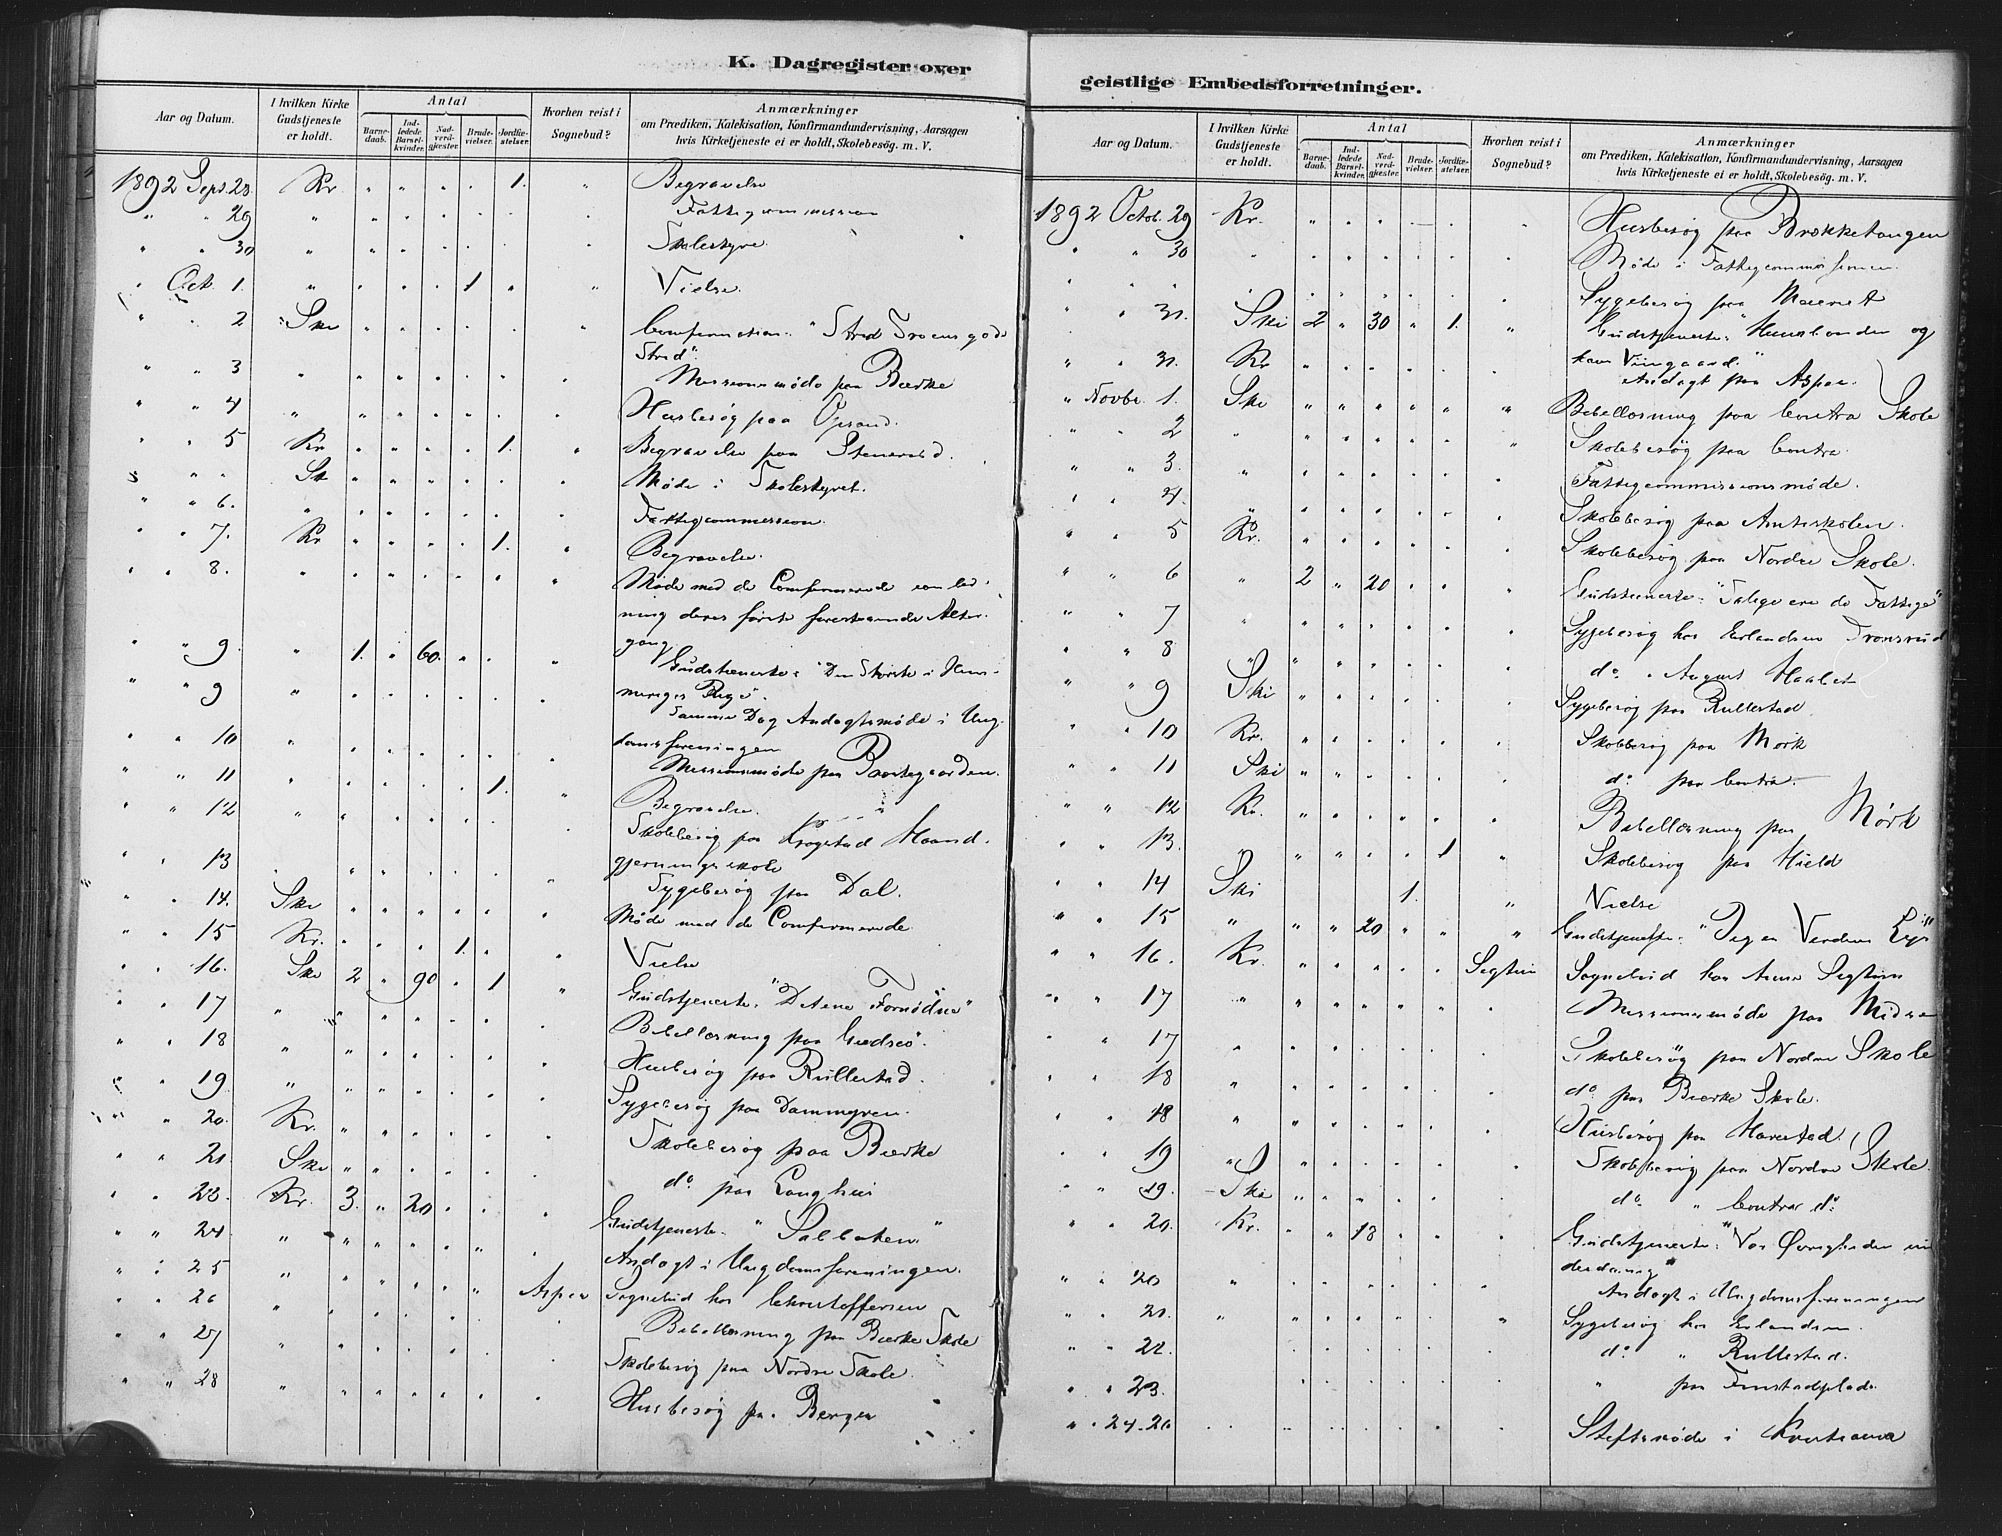 K. Dagregister over
Aar og Datum.
I hvilken Kirke Gudstjeneste er holdt.
Antal
Barnedaab.
Indledede Barselkvinder.
Nadverdgjæster.
Brudevielser.
Jordfæstelser.
Hvorhen reist i Sognebud?
Anmærkninger
om Prædiken, Katekisation, Konfirmandundervisning, Aarsagen
hvis Kirketjeneste ei er holdt, Skolebesög. m. V.
1892 Sept. 28. Kr " " " " 1. " Begravelse
" " 29 " Fattigcommission
" " 30 " Skolestyre.
" Oct. 1. " " " " 1 " " Vielse.
" 2 Ski Confirmation.
" " 3 " Missionsmöde paa Bærke
" " 4 " Husbesøg paa Opsand.
" " 5 Kr 1. Begravelse paa Stenerud.
" " Sk Møde i Skolestyret.
" " 6. " Fattigcommission.
" " 7. Kr 1. Begravelse.
" " 8. " Møde med de Confirmerede
ning deres første forestaaende Alter-
gang
" " 9. " 1. " 60. Gudstjeneste: "Den Største i Him-
meriges Rige"
" " 9 " Samme Dag Andagtsmøde i Ung-
domsforeningen
" " 10 " Missionsmøde paa Præstegaarden.
" " 11 " 1. Begravelse.
" " 12 " Skolebesøg paa Krogstad Haand-
gjerningsskole
" " 13 Sygebesøg paa Dal.
" " 14. Ski Møde med de Confirmerede
" " 15 Kr. 1. Vielse
" " 16. Ski 2 " 90 " 1 " Gudstjeneste. "Det ene Fornødne"
" " 17 " Bibellæsning paa
" " 18 " Husbesøg paa Rullestad.
" " 19 " Sygebesøg paa Dammyren.
" " 20. Kr. Skolebesøg paa Bærke
" " 21 Ski do paa Langhus
" " 23. Kr. 3. " 20 Gudstjeneste. "Saltoken"
" " 24 " Andagt i Ungdomsforeningen.
" " 25 " Asper Sognebud hos Christoffersen
" " 26 " Bibellæsning paa Bærke Skole
" " 27 Skolebesøg paa Nordre Skole.
" " 28 " Husbesøg paa Berger
geistlige Embedsforretninger.
Aar og Datum.
I hvilken Kirke Gudstjeneste er holdt.
Antal
Barnedaab.
Indledede Barselkvinder.
Nadverdgjæster.
Brudevielser.
Jordfæstelser.
Hvorhen reist i Sognebud?
Anmærkninger
om Prædiken, Katekisation, Konfirmandundervisning, Aarsagen
hvis Kirketjeneste ei er holdt, Skolebesög. m. V.
1892 Octob. 29 Kr. Husbesøg paa Brekketangen
" " 30 " Møde i Fattigcommissionen.
Sygebesøg paa Meieriet
" 31. Ski 2 " 30 " 1. " Gudstjeneste. og
hans Viingaard."
" " 31. Kr Andagt paa Asper.
" Novbr 1. Ski Bibellæsning paa Contra Skole
" " 2 " Skolebesøg paa Contra
" " 3. " Fattigcommissionsmøde.
" " 4. " Skolebesøg paa Amtsskolen.
" " 5 Kr. Skolebesøg paa Nordre Skole.
" " 6 " 2 " 20 Gudstjeneste. "Salige ere de Fattige"
" " 7 " Sygebesøg hos Erlandsen Tronsrud
" " 8 " do " August
" " 9 Ski Sygebesøg paa Rullestad.
" " 10 Kr. Skolebesøg paa Mørk
" " 11 Ski do paa Contra.
" " 12 Kr. Bibellæsning paa Mørk
" " 13. " 1 Skolebesøg paa
" " 14 Ski 1. Vielse
" " 15 " 20 Gudstjeneste. "Jeg er Verdens Lys"
" " 16. Kr. Segsten Sognebud hos Segsten
" " 17 " Missionsmøde paa Midsem
" " 17 " Skolebesøg paa Nordre Skole
" " 18 " do paa Bærke Skole.
" " 18 " Husbesøg paa Haverstad.
" " 19 " Skolebesøg paa Nordre Skole.
" " 19. Ski do " Contra do
" " 20. Kr. 18 Gudstjeneste: "Vor
" " 20 " Andagt i Ungdomsforeningen
" " 21. " Sygebesøg hos Erlandsen.
" " 22. do " Rullestad.
" " 23. " paa
" " 24-26 Stiftsmøde i Kristiania